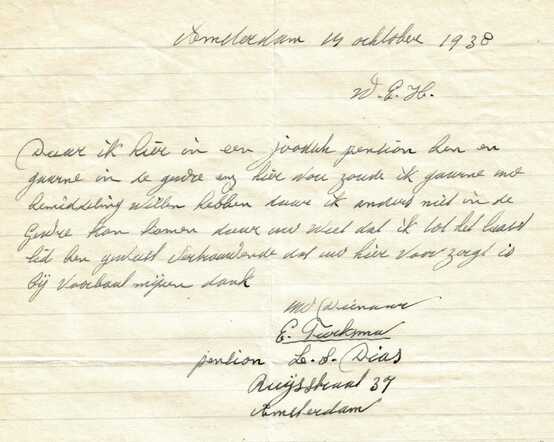 Amsterdam 14 ochtober 1938
W.E.H.
Daar ik hier in een joodsch pention ben en
gaarne in de gedre enz hier von zoude ik gaarne uwe
bemiddeling willen hebben daar ik anders niet in de
Gedre kan komen daar uw weet dat ik tot het laast
lid ben geweest Vertrouwende dat uw hier voor zorgt is
bij voorbaat mijnen dank
uw Dienaar
E. Turksma
pention L. S. Dias
Ruijsstraat 37
Amsterdam